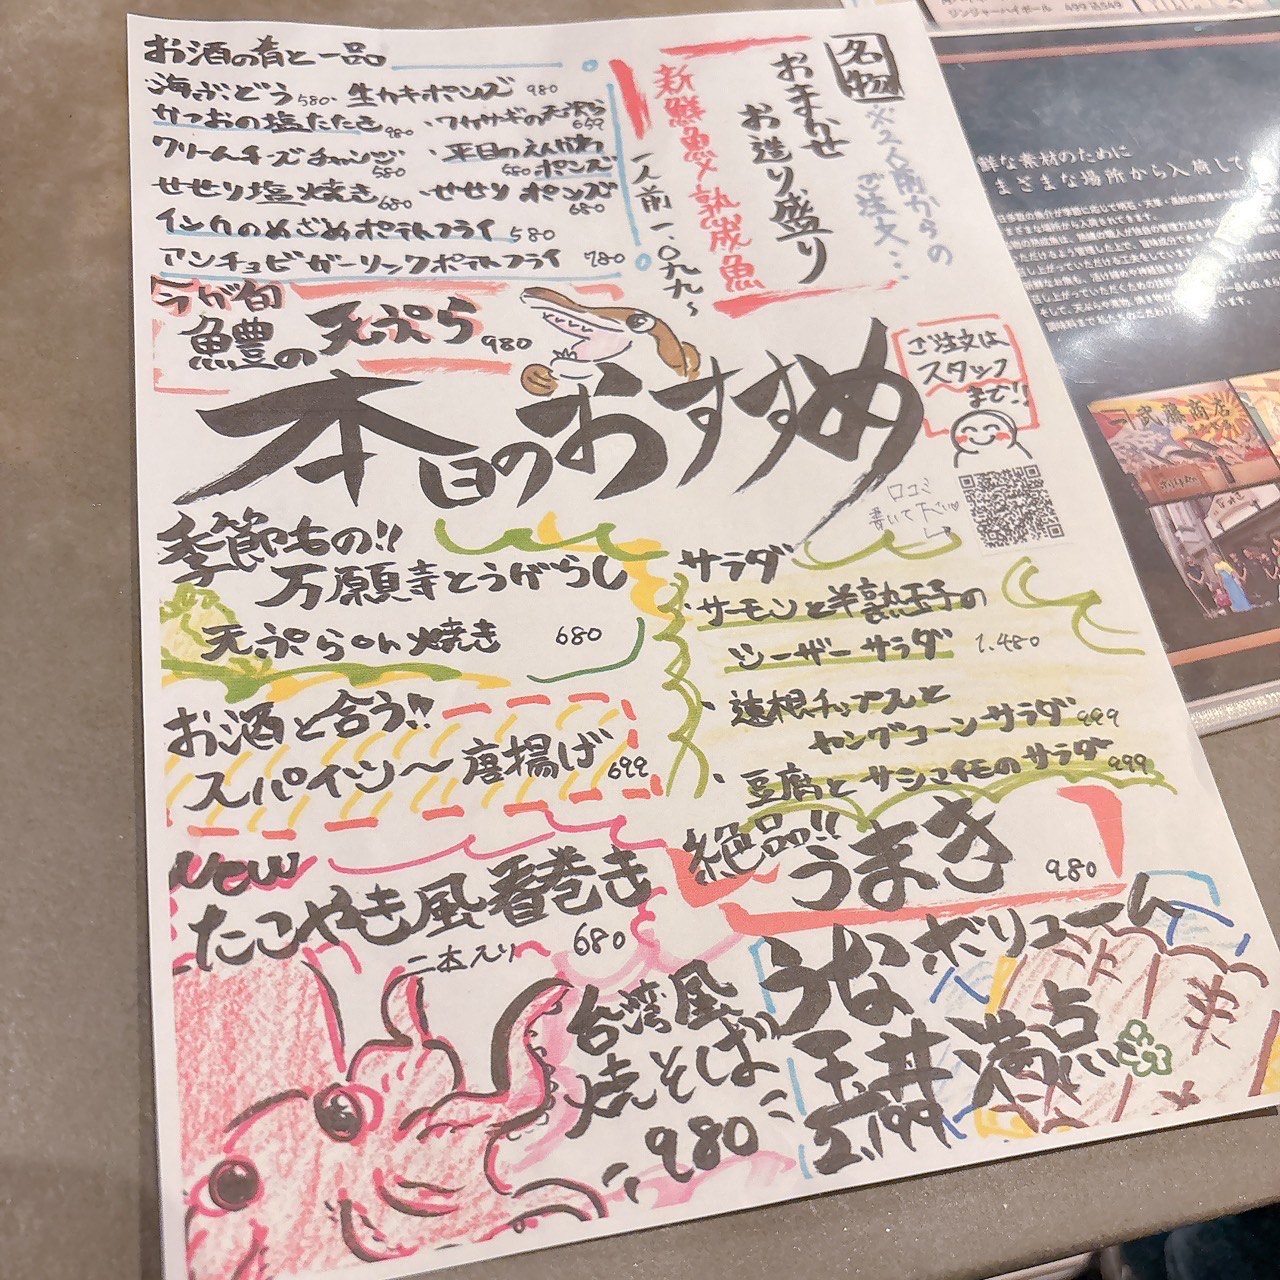 お酒の肴と一品
海ぶどう 580 ・生カキポンズ 980
かつおの塩たたき 980 ・ワカサギの天ぷら 659
クリームチーズチャンジ 580 ・平目のえんがわポンズ 580
せせり塩焼き 680 ・せせりポンズ 680
インカのめざめポテトフライ 580
アンチョビガーリックポテトフライ 780
名物
おまかせ
お造り盛り
新鮮魚×熟成魚
一人前 一、〇九九〜
※2人前からの
ご注文…
今が旬
鱧の天ぷら 980
本日のおすすめ
ご注文は
スタッフ
まで!!
口コミ
書いて下さい
季節もの!!
万願寺とうがらし
天ぷら or 焼き 680
サラダ
・サーモンと半熟玉子の
シーザーサラダ 1.480
・蓮根チップスと
ヤングコーンサラダ 999
・豆腐とサツマイモのサラダ 999
お酒と合う!!
スパイシ〜唐揚げ 699
絶品!!
うまき 980
New
たこやき風春巻き
二本入り〜 680
台湾風
焼そば
980
うな
玉丼
2,199
ボリューム
満点
鮮な素材のために
まざまな場所から入荷して
武藤商店
ジンジャーハイボール 499 込549